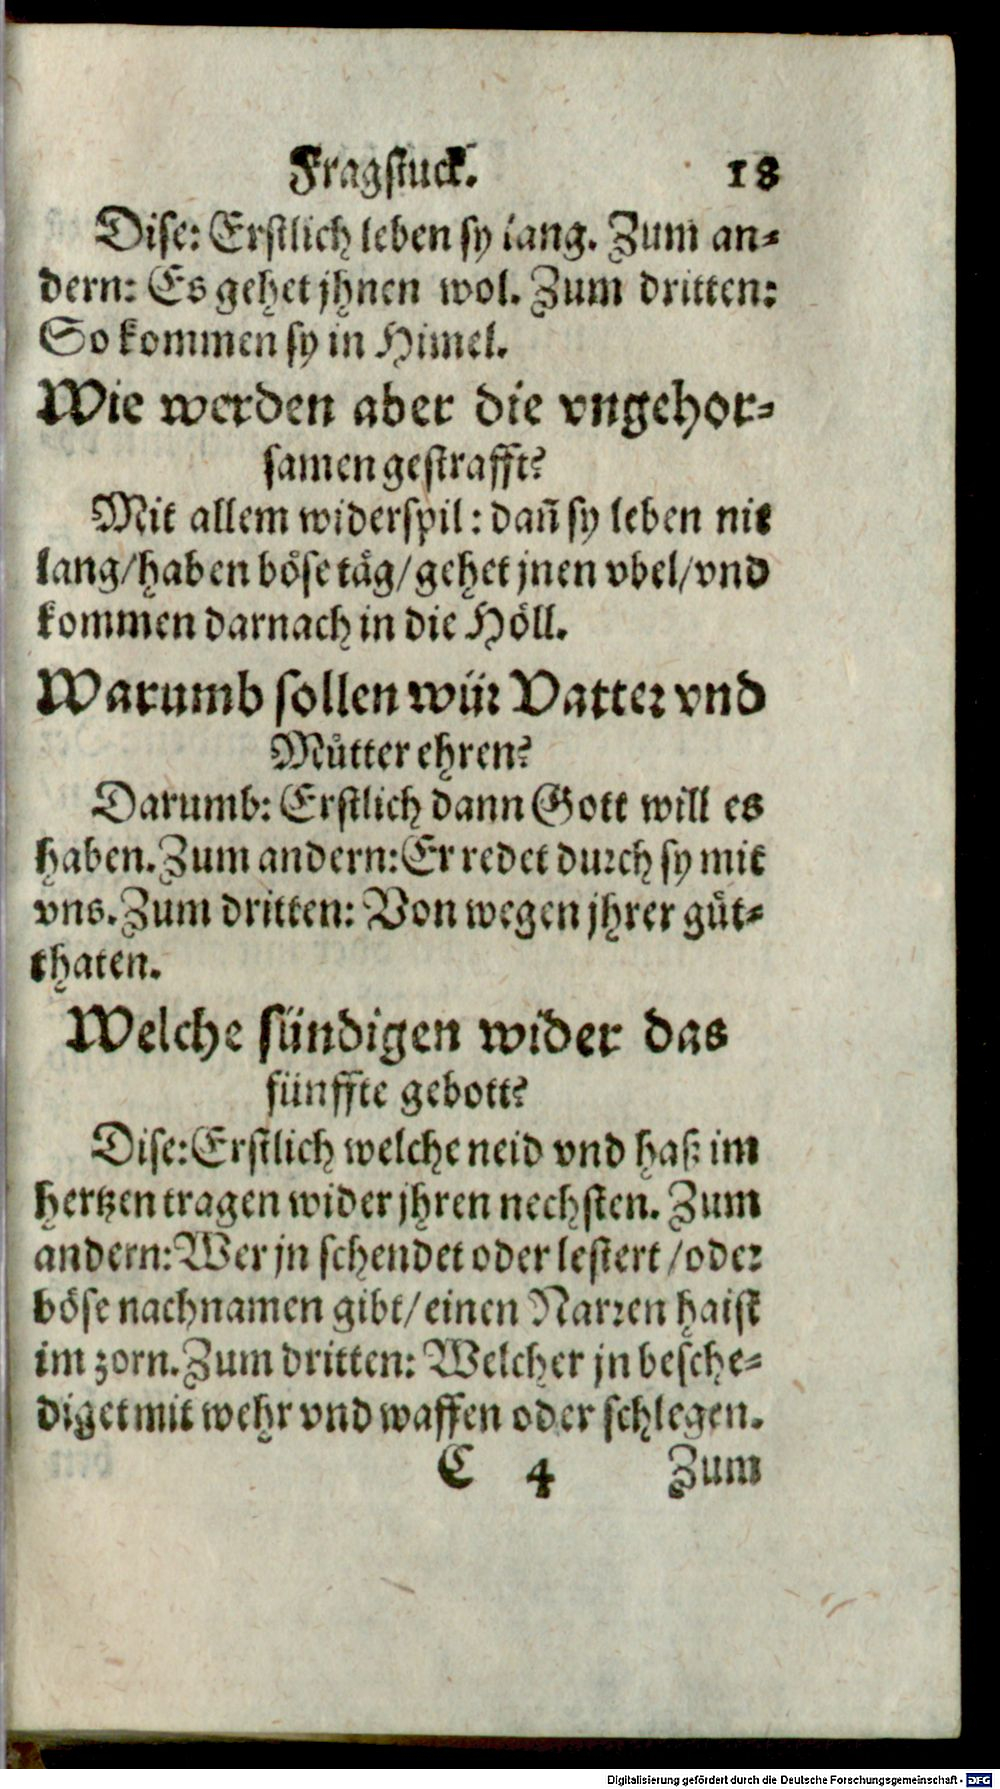 Fragstuck. 18
Dise: Erstlich leben sy lang. Zum an-
dern: Es gehet jhnen wol. Zum dritten:
So kommen sy in Himel.
Wie werden aber die vngehor-
samen gestrafft?
Mit allem widerspil: dañ sy leben nit
lang/haben böse täg/gehet jnen vbel/vnd
kommen darnach in die Höll.
Warumb sollen wür Vatter vnd
Můtter ehren?
Darumb: Erstlich dann Gott will es
haben. Zum andern: Er redet durch sy mit
vns. Zum dritten: Von wegen jhrer gůt-
thaten.
Welche sündigen wider das
fünffte gebott?
Dise: Erstlich welche neid vnd haß im
hertzen tragen wider jhren nechsten. Zum
andern: Wer jn schendet oder lestert/oder
böse nachnamen gibt/einen Narren haist
im zorn. Zum dritten: Welcher jn besche-
diget mit wehr vnd waffen oder schlegen.
C 4 Zum
Digitalisierung gefördert durch die Deutsche Forschungsgemeinschaft - DFG